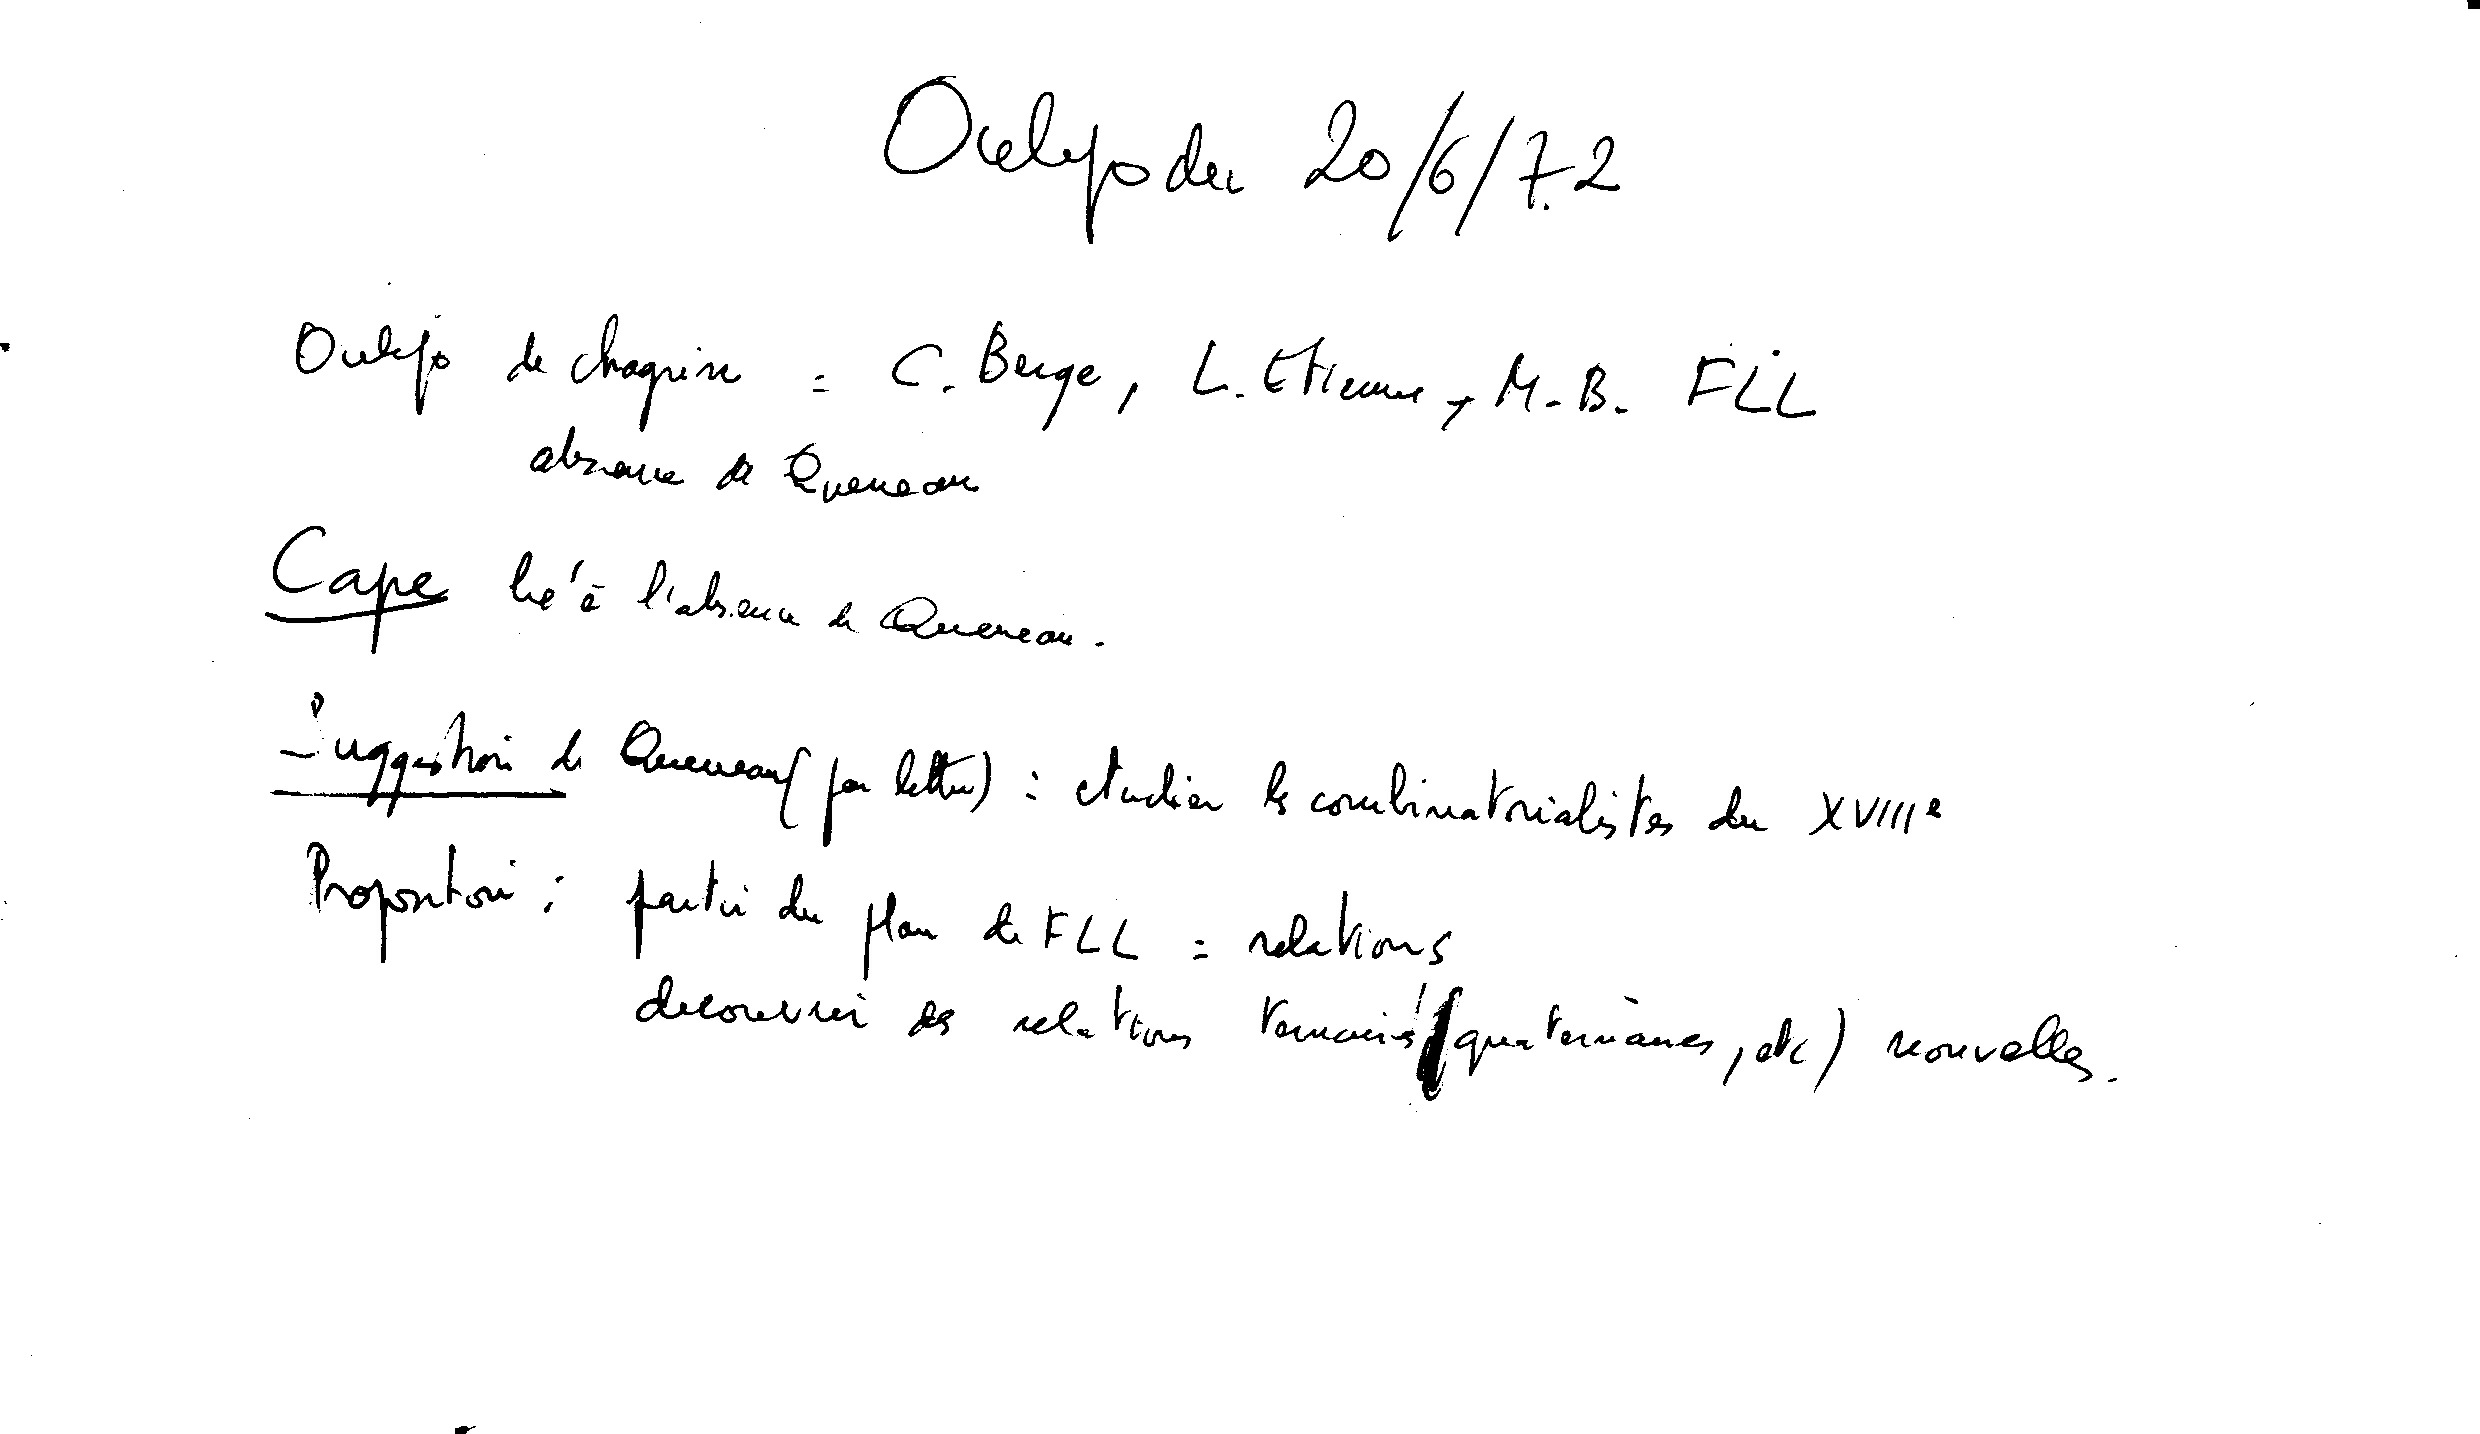 Oulipo du 20/6/72
Oulipo de chagrin : C. Berge, L. Etienne, M.B. FLL
absence de Queneau
Cape lié à l'absence de Queneau.
Suggestion de Queneau (par lettre) : etudier les combinatorialistes du XVIIIe
Proposition : partir du plan de FLL : relations
decouvrir des relations ternaires (quaternaires, etc) nouvelles.